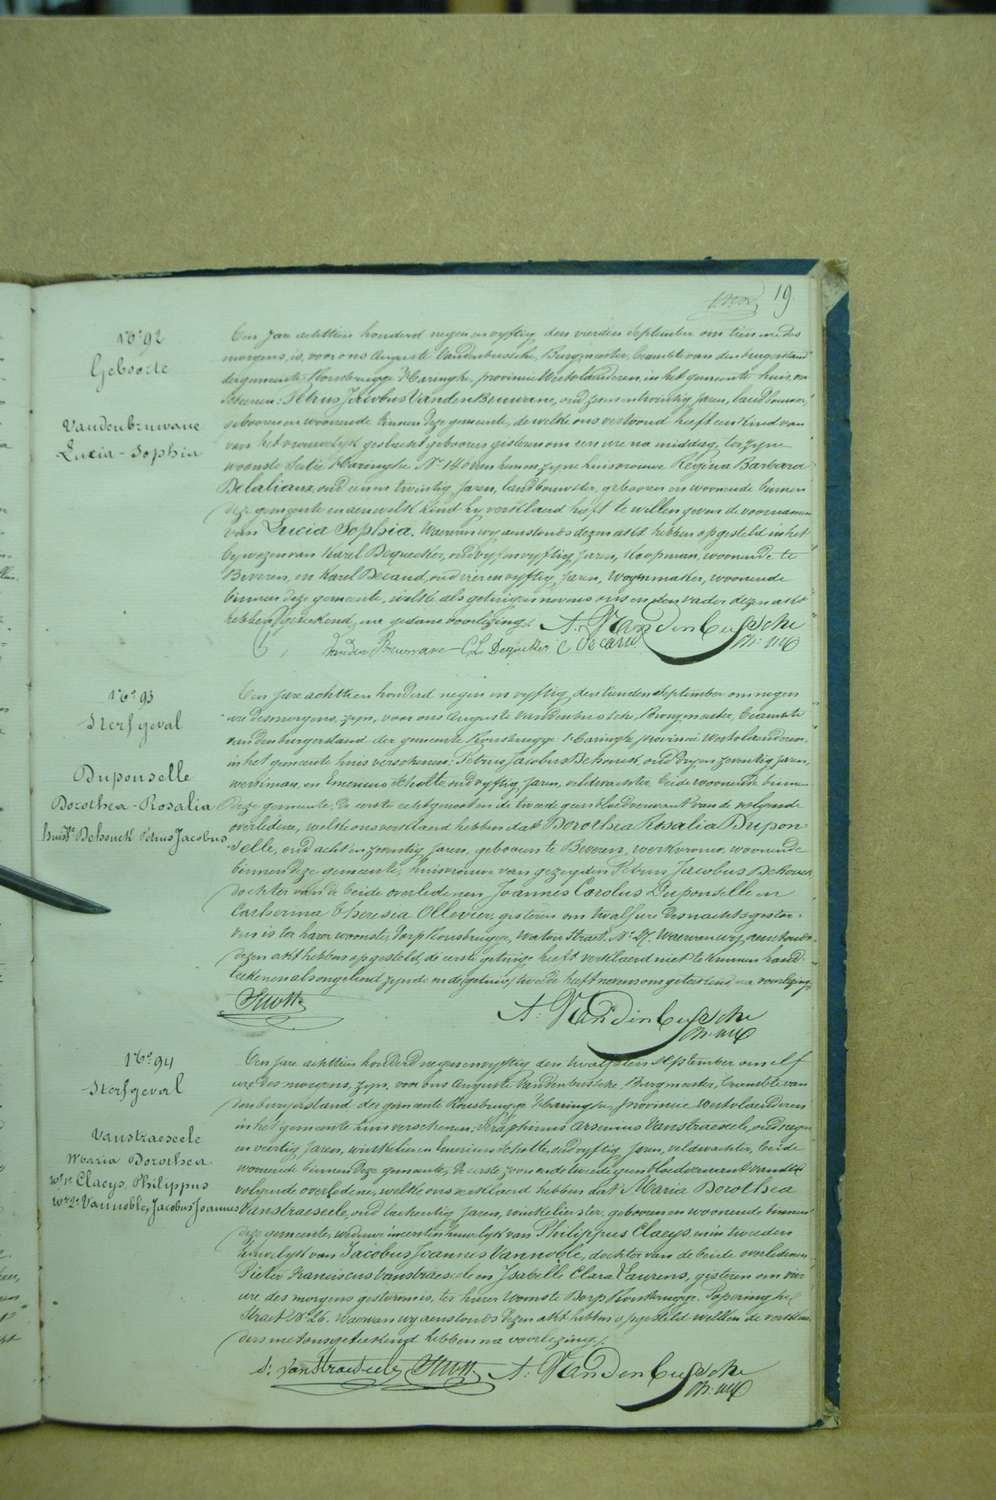 19
N° 92
Geboorte
Vandenbruwane
Lucia-Sophia
Een Jaar achttien honderd negen en vyftig den vierden September om tien ure des
morgens, is, voor ons Auguste Vandenbussche, Burgmeester, beambte van den burgerstand
der gemeente Rousbrugge-Haringhe, provincie Westvlaanderen, in het gemeente huis, ver
schenen: Petrus Jacobus Vanden Bruwane, oud zeven en twintig Jaren, landbouwer,
gebooren en woonende binnen deze gemeente, de welke ons vertoond heeft een kind van
van het vrouwelyk geslacht gebooren gisteren om een ure na middag, ter zyne
woonste Sectie Haringhe N° 140 van hem en zyne huisvrouwe Regina Barbara
Delalieux, oud een en twintig Jaren, landbouwster, gebooren en woonende binnen
deze gemeente en aen welk kind hy verklaerd heeft te willen geven de voornamen
van Lucia Sophia. Waervan wy aenstonds dezen akt hebben opgesteld in het
bywezen van Karel Dequecker, oud vyf en vyftig Jaren, Koopman, woonende te
Beveren, en Karel Decaud, oud vier en vyftig Jaren, Wagenmaker, woonende
binnen deze gemeente, welke als getuigen nevens ons en den vader dezen akt
hebben geteekend, na gedane voorlezing.
A. Vandenbussche
Vanden Bruwane
C L Dequeker
N° 93
Sterfgeval
Duponselle
Dorothea-Rosalia
huisv. Dehouck Petrus Jacobus
Een Jare achttien honderd negen en vyftig, den tienden September om negen
ure des morgens, zyn, voor ons Auguste Vandenbussche, Burgmeester, beambte
van den burgerstand der gemeente Rousbrugge-Haringhe, provincie Westvlaanderen,
in het gemeente huis verschenen: Petrus Jacobus Dehouck, oud dry en zeventig Jaren,
werkman, en Emerinus Scholte oud vyftig Jaren, veldwachter, beide woonende binnen
deze gemeente, de eerste echtgenoot en de tweede geen bloedverwant van de volgende
overledene, welke ons verklaerd hebben dat Dorothea Rosalia Dupon
selle, oud acht en zeventig Jaren, gebooren te Beveren, werkvrouw, woonende
binnen deze gemeente, huisvrouw van gezegden Petrus Jacobus Dehouck
dochter van de beide overledenen Joannes Carolus Duponselle en
Catherina Theresia Ollevier, gisteren om twalf ure des nachts gestor-
ven is ter harer woonste, Dorp Rousbrugge, Watou Straet N° 27. Waervan wy aenstonds
dezen akt hebben opgesteld, de eerste getuige heeft verklaerd niet te kunnen hand-
teekenen als ongeleerd zynde en de getuige tweede heeft nevens ons geteekend, na voorlezing.
A. Vandenbussche
N° 94
Sterfgeval
Vanstraeseele
Maria Dorothea
we 1e Claeys, Philippus
we 2e Vannoble, Jacobus Joannes
Een Jare achttien honderd negen en vyftig den twalfsten September om elf
ure des morgens, zyn, voor ons Auguste Vandenbussche, Burgmeester, beambte van
den burgerstand der gemeente Rousbrugge-Haringhe, provincie Westvlaanderen
in het gemeente huis verschenen: Seraphinus Arsenius Vanstraeseele, oud negen
en veertig Jaren, winkelier en Emerinus Scholte, oud vyftig Jaren, veldwachter, beide
woonende binnen deze gemeente, de eerste zoon en de tweede geen bloedverwant van de
volgende overledene, welke ons verklaerd hebben dat Maria Dorothea
Vanstraeseele, oud tachentig Jaren, winkelierster, gebooren en woonende binnen
deze gemeente, weduwe in eersten huwelyk van Philippus Claeys en in tweeden
huwelyk van Jacobus Joannes Vannoble, dochter van de beide overledenen
Pieter Franciscus Vanstraeseele en Isabelle Clara Laurens, gisteren om vier
ure des morgens gestorven is, ter harer woonste Dorp Rousbrugge, Poperinghe
Straet N° 26. Waervan wy aenstonds dezen akt hebben opgesteld welken de verklaer-
ders met ons geteekend hebben na voorlezing.
S. Vanstraeseele
A. Vandenbussche